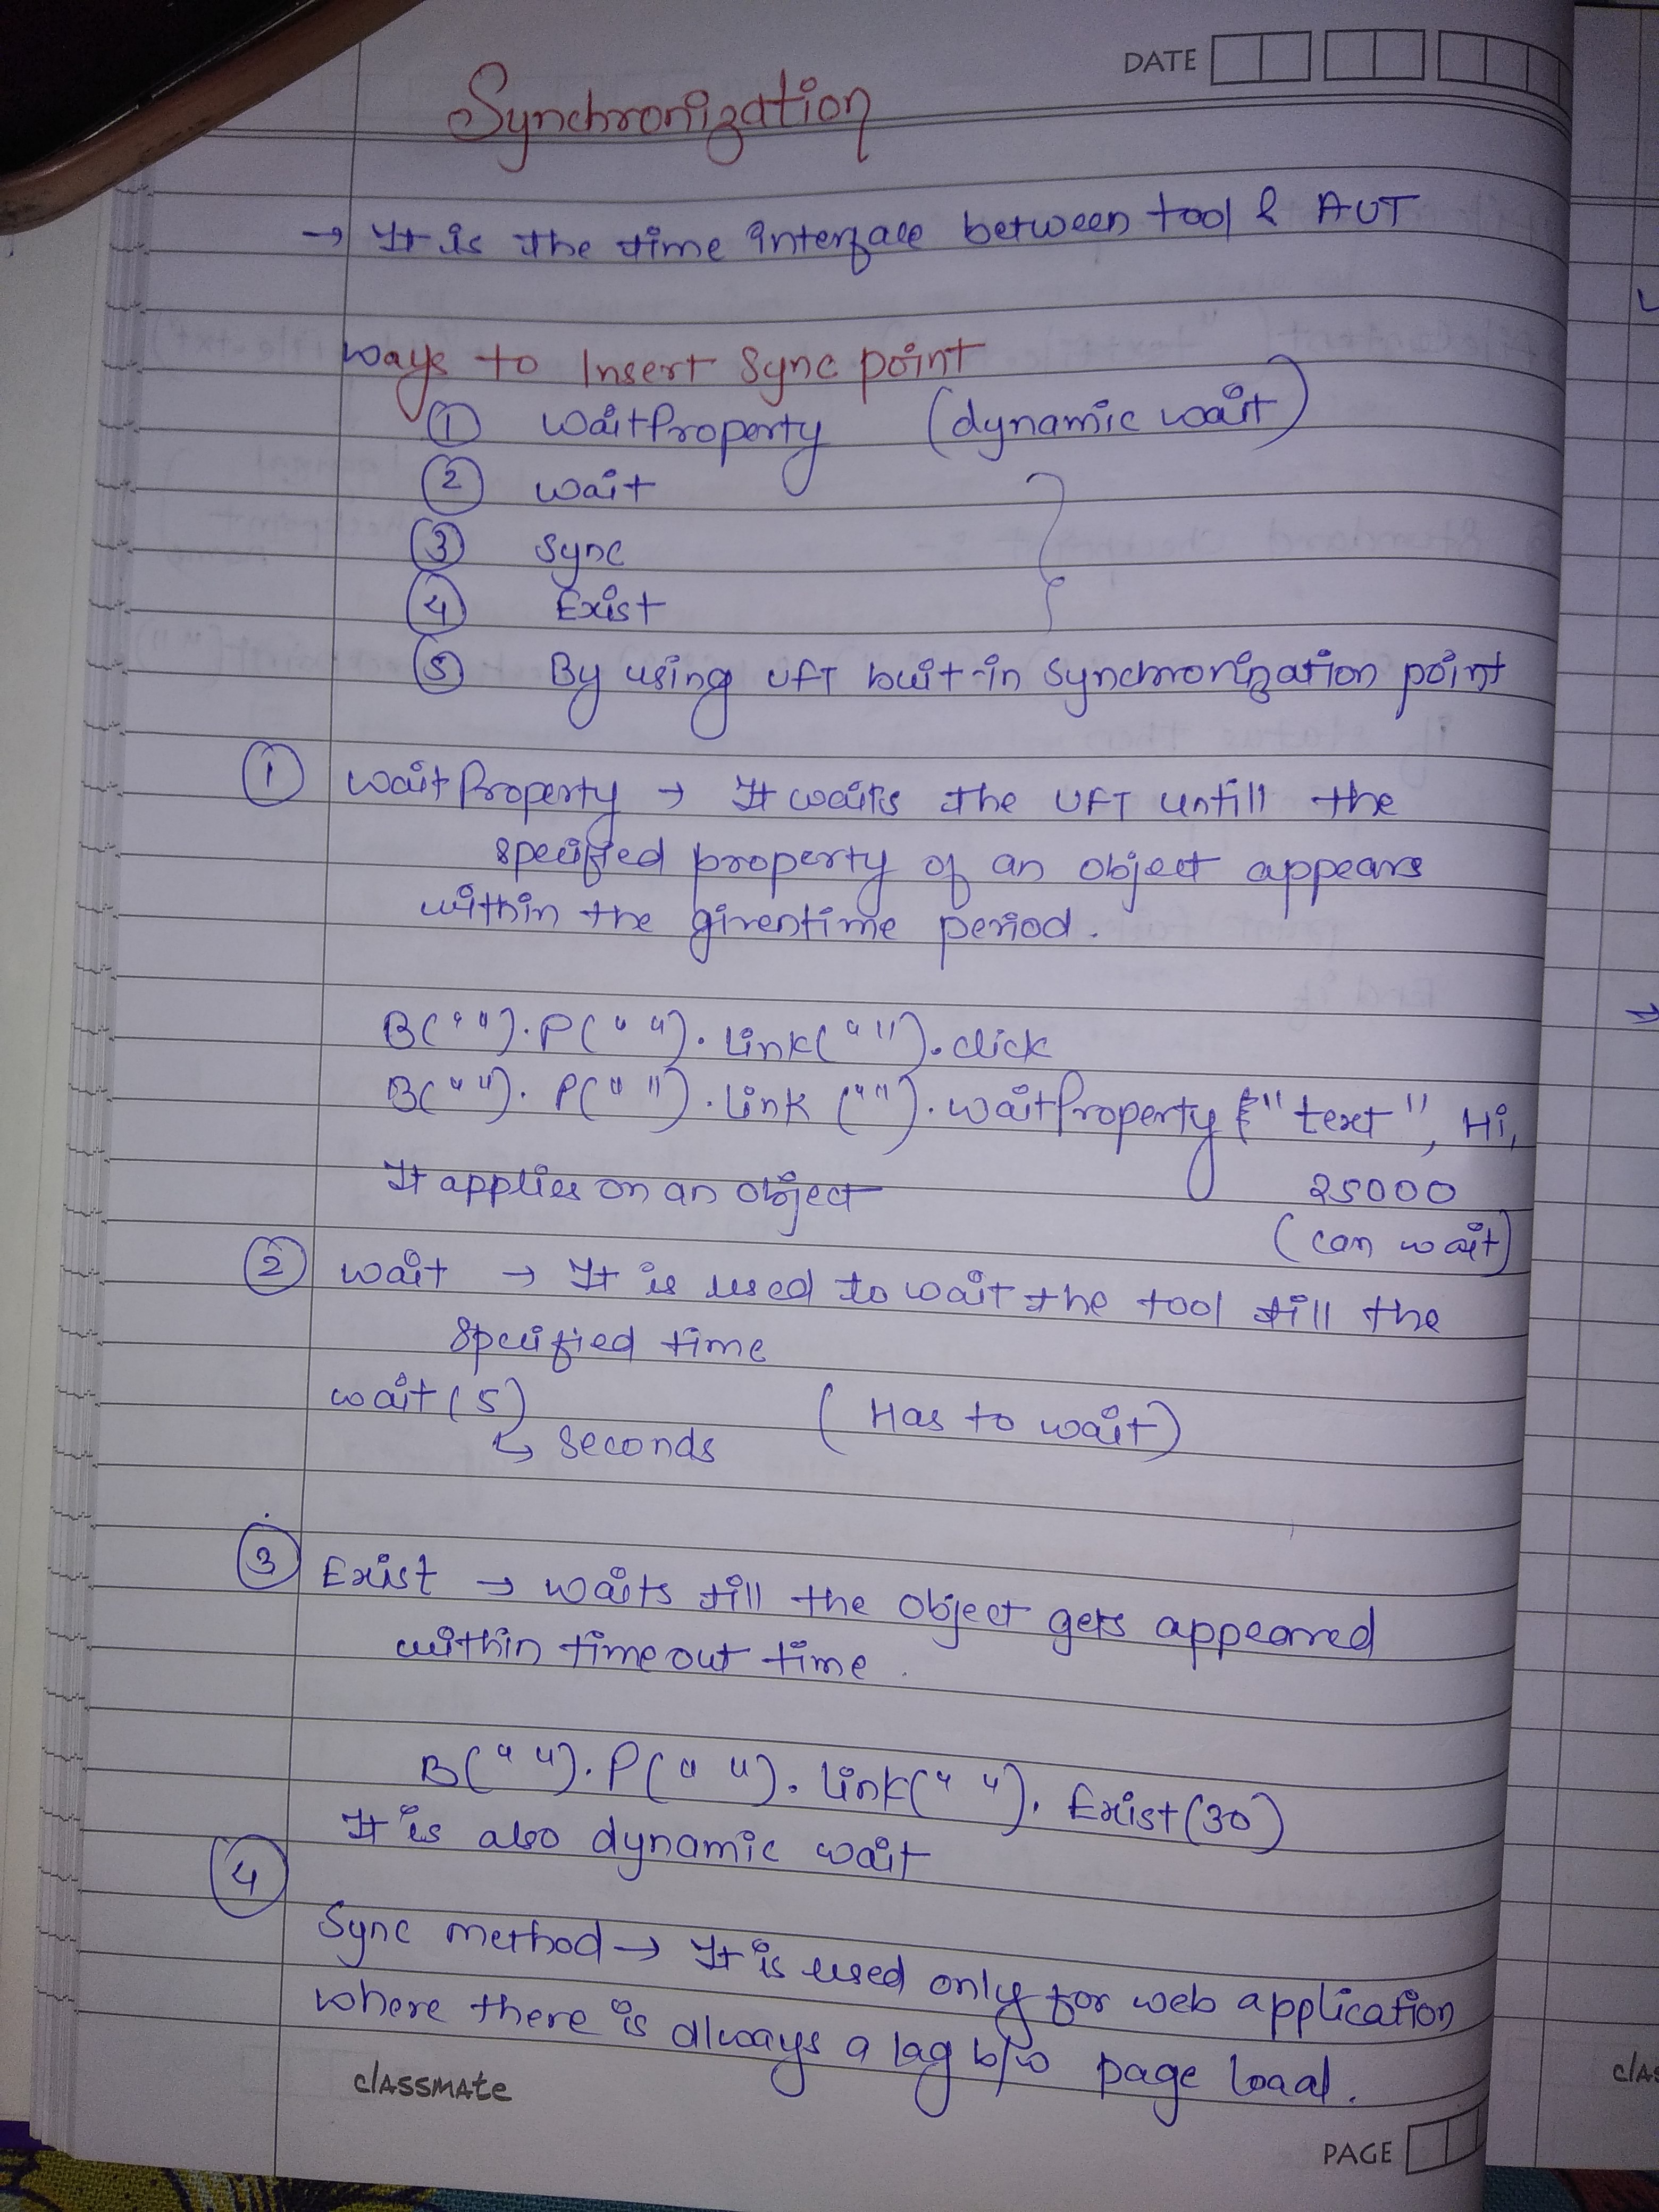 DATE
Synchronization
→ It is the time interface between tool & AUT
Ways to Insert Sync point
① WaitProperty (dynamic wait)
② wait
③ Sync
④ Exist
⑤ By using UFT buit-in Synchronization point
① WaitProperty → It waits the UFT untill the
specified property of an object appears
within the given time period.
B(" "). P(" "). Link(" "). click
B(" "). P(" "). Link (" "). WaitProperty ("text", Hi,
It applies on an object 25000
(can wait)
② wait → It is used to wait the tool till the
specified time
wait (5) (Has to wait)
↳ seconds
③ Exist → waits till the object gets appeared
within time out time.
B(" "). P(" "). Link(" "). Exist (30)
It is also dynamic wait
④
Sync method → It is used only for web application
where there is always a lag b/w page load.
classmate
PAGE